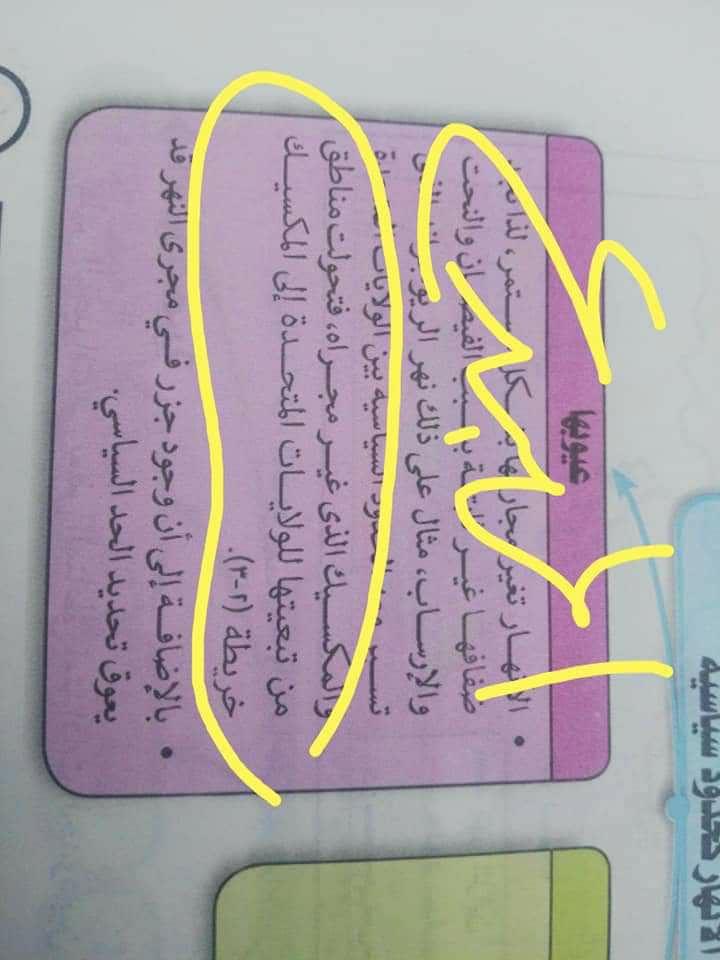 الأنهار كحدود سياسية
عيوبها
• الأنهار تغير مجاريها بشكل مستمر، لذا
ضفافها غير بسبب الفيضان والنحت
والإرساب، مثال على ذلك نهر الريو جراند الذى
الحدود السياسية بين الولايات المتحدة
والمكسيك الذى غير مجراه، فتحولت مناطق
من تبعيتها للولايات المتحدة إلى المكسيك
خريطة (٢-٣).
• بالإضافة إلى أن وجود جزر فى مجرى النهر قد
يعوق تحديد الحد السياسي.